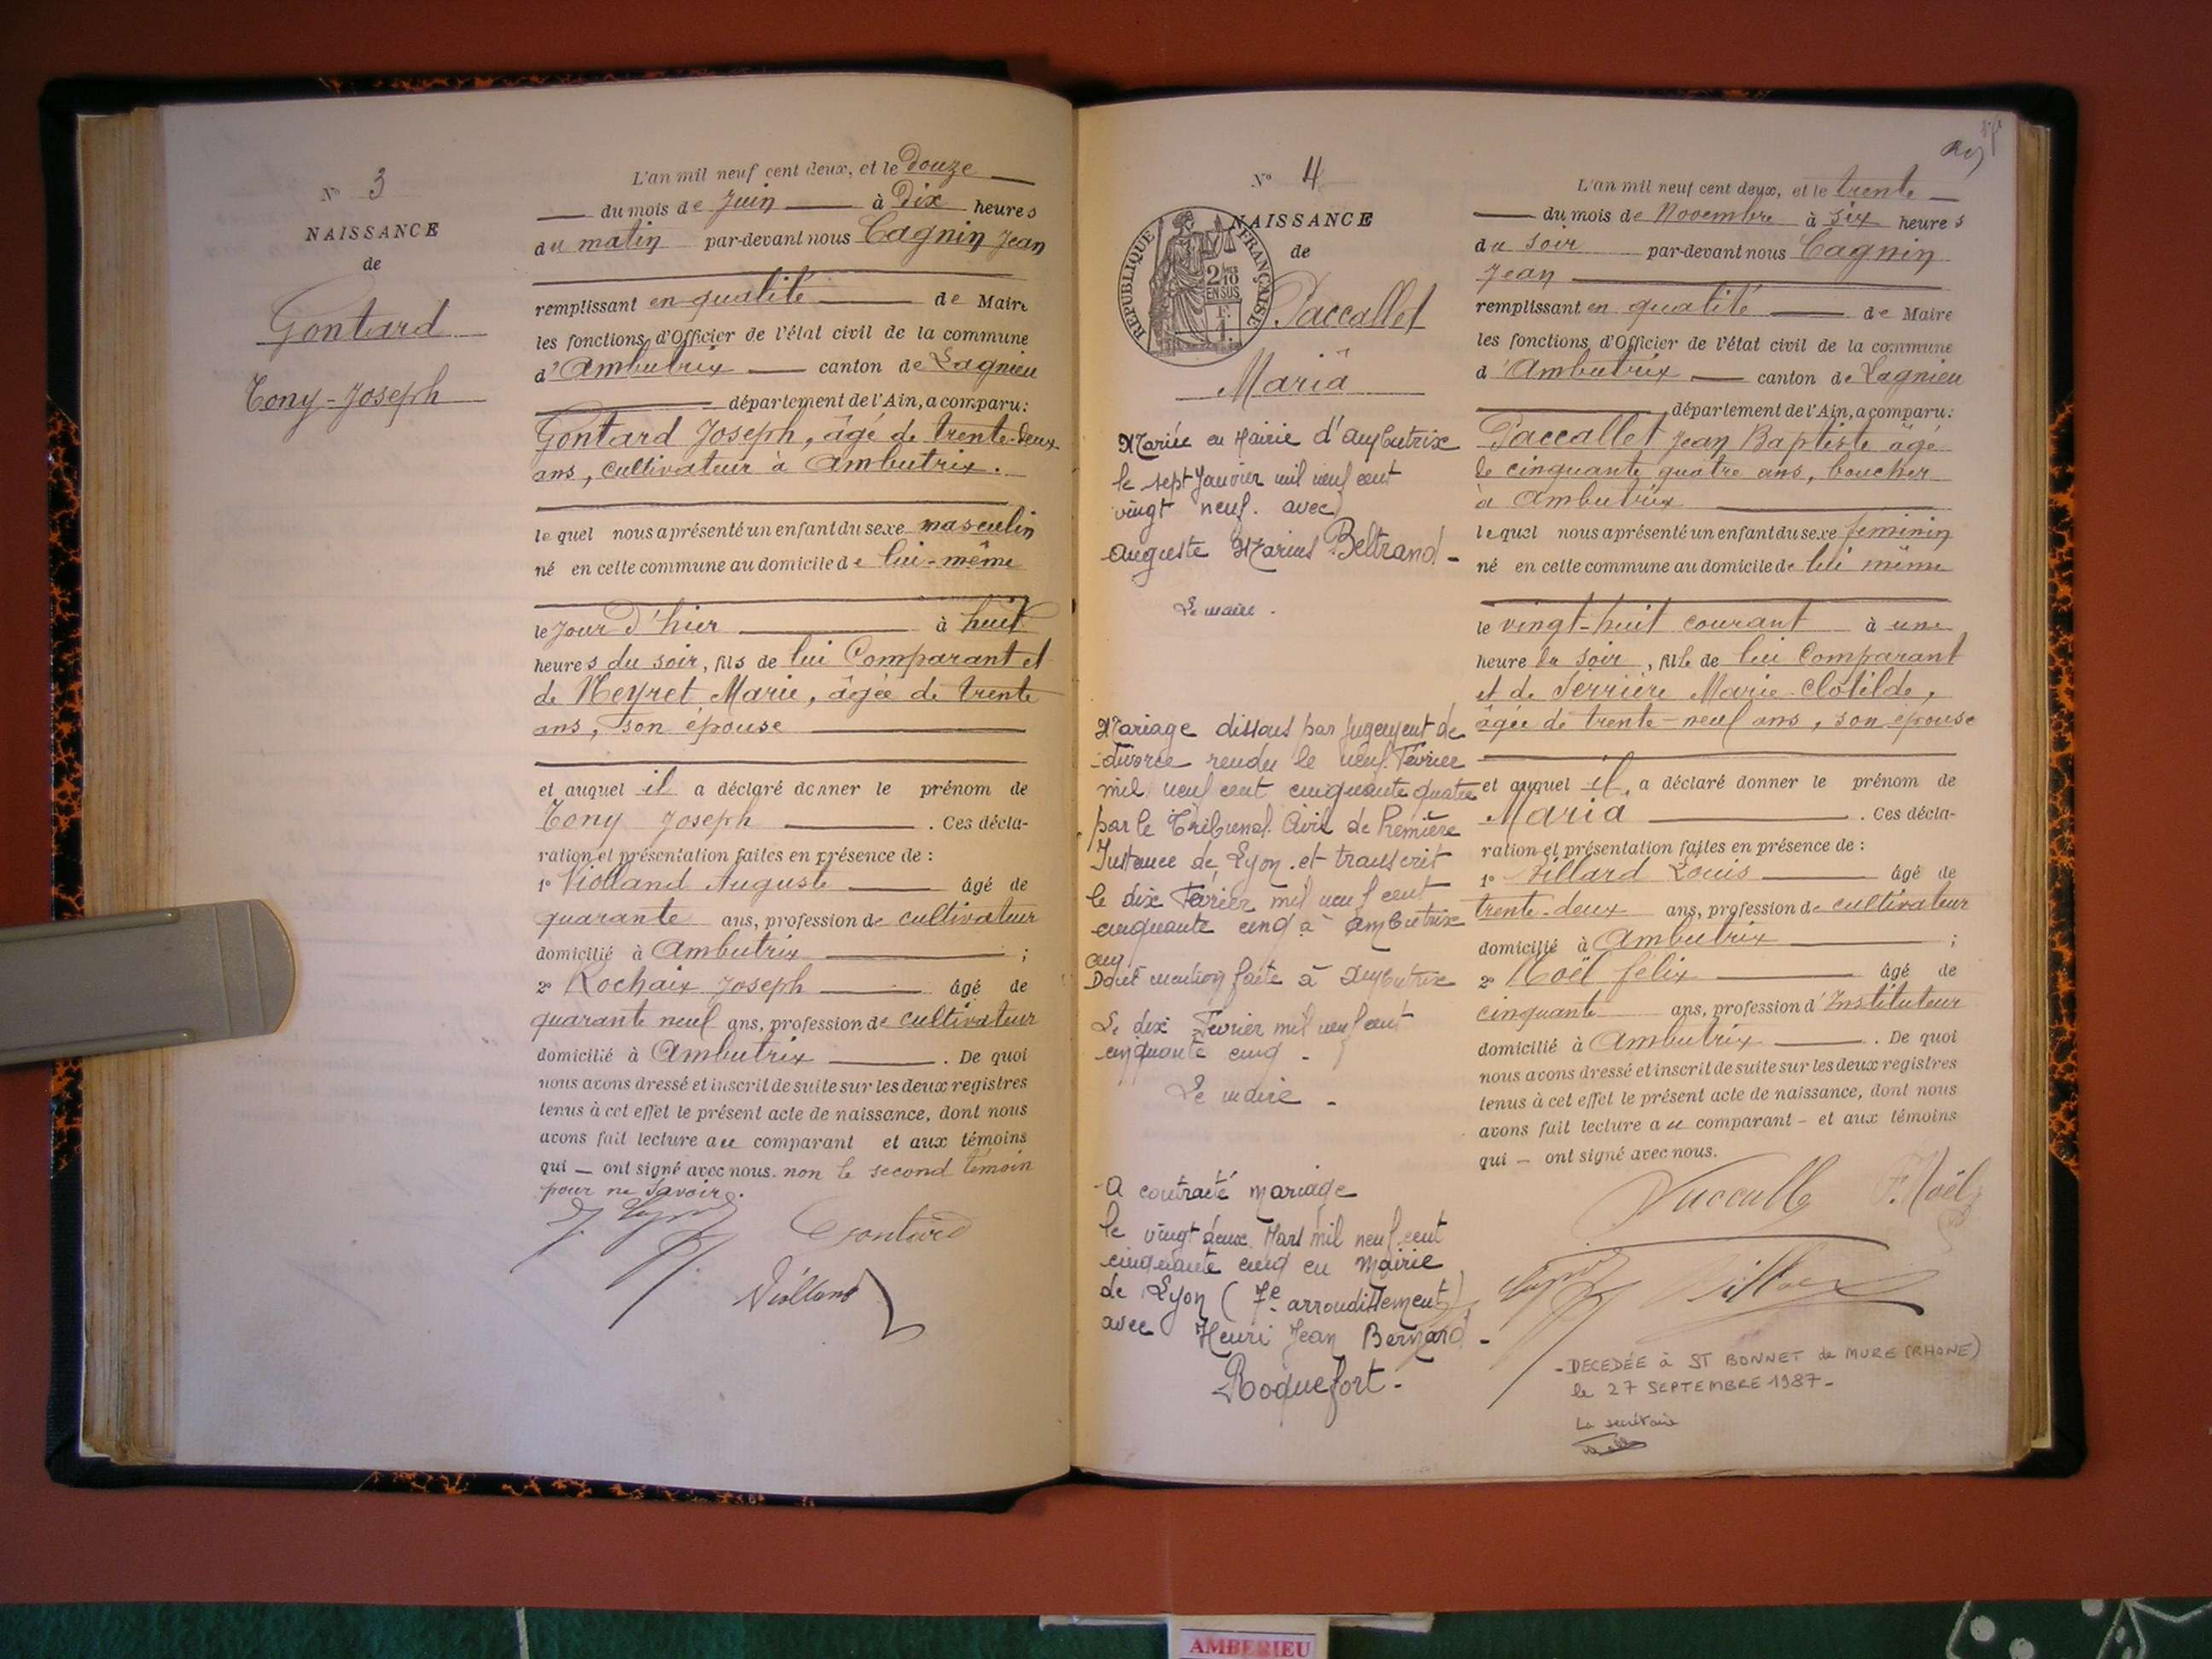 N° 3
NAISSANCE
de
Gontard
Tony-Joseph
L'an mil neuf cent deux, et le Douze
du mois de Juin à Dix heures
du matin par-devant nous Cagnin Jean
remplissant en qualité de Maire
les fonctions d'Officier de l'état civil de la commune
d'Ambutrix canton de Lagnieu
département de l'Ain, a comparu:
Gontard Joseph, âgé de trente-deux
ans, cultivateur à Ambutrix.
lequel nous a présenté un enfant du sexe masculin
né en cette commune au domicile de lui-même
le jour d'hier à huit
heures du soir, fils de lui Comparant et
de Neyret Marie, âgée de trente
ans, son épouse
et auquel il a déclaré donner le prénom de
Tony Joseph. Ces décla-
ration et présentation faites en présence de :
1° Violland Auguste âgé de
quarante ans, profession de cultivateur
domicilié à Ambutrix ;
2° Rochaix Joseph âgé de
quarante neuf ans, profession de cultivateur
domicilié à Ambutrix. De quoi
nous avons dressé et inscrit de suite sur les deux registres
tenus à cet effet le présent acte de naissance, dont nous
avons fait lecture au comparant et aux témoins
qui — ont signé avec nous. non le second témoin
pour ne savoir.
Gontard
Violland
N° 4
NAISSANCE
de
RÉPUBLIQUE FRANÇAISE
2/10 EN SUS
Paccallet
Maria
Mariée en Mairie d'Ambutrix
le sept Janvier mil neuf cent
vingt neuf. avec
Auguste Marius Beltrand -
Le maire.
Mariage dissous par Jugement de
divorce rendu le neuf Février
mil neuf cent cinquante quatre
par le Tribunal Civil de Première
Instance de Lyon et transcrit
le dix Février mil neuf cent
cinquante cinq à Ambutrix
Dont mention faite à Ambutrix
Le dix Février mil neuf cent
cinquante cinq -
Le maire -
A contracté mariage
le vingt deux Mars mil neuf cent
cinquante cinq en Mairie
de Lyon (7e arrondissement)
avec Henri Jean Bernard -
Roquefort -
L'an mil neuf cent deux, et le trente
du mois de Novembre à six heures
du soir par-devant nous Cagnin
Jean
remplissant en qualité de Maire
les fonctions d'Officier de l'état civil de la commune
d'Ambutrix canton de Lagnieu
département de l'Ain, a comparu:
Paccallet Jean Baptiste âgé
de cinquante quatre ans, boucher
à Ambutrix
lequel nous a présenté un enfant du sexe feminin
né en cette commune au domicile de lui même
le vingt-huit courant à une
heure du soir, fille de lui Comparant
et de Serrière Marie-Clotilde,
âgée de trente-neuf ans, son épouse
et auquel il a déclaré donner le prénom de
Maria. Ces décla-
ration et présentation faites en présence de :
1° Villard Louis âgé de
trente-deux ans, profession de cultivateur
domicilié à Ambutrix ;
2° Noël felix âgé de
cinquante ans, profession d'Instituteur
domicilié à Ambutrix. De quoi
nous avons dressé et inscrit de suite sur les deux registres
tenus à cet effet le présent acte de naissance, dont nous
avons fait lecture au comparant - et aux témoins
qui — ont signé avec nous.
F. Noël
- DECEDÉE à ST BONNET de MURE (RHONE)
le 27 SEPTEMBRE 1987 -
La secrétaire
AMBERIEU